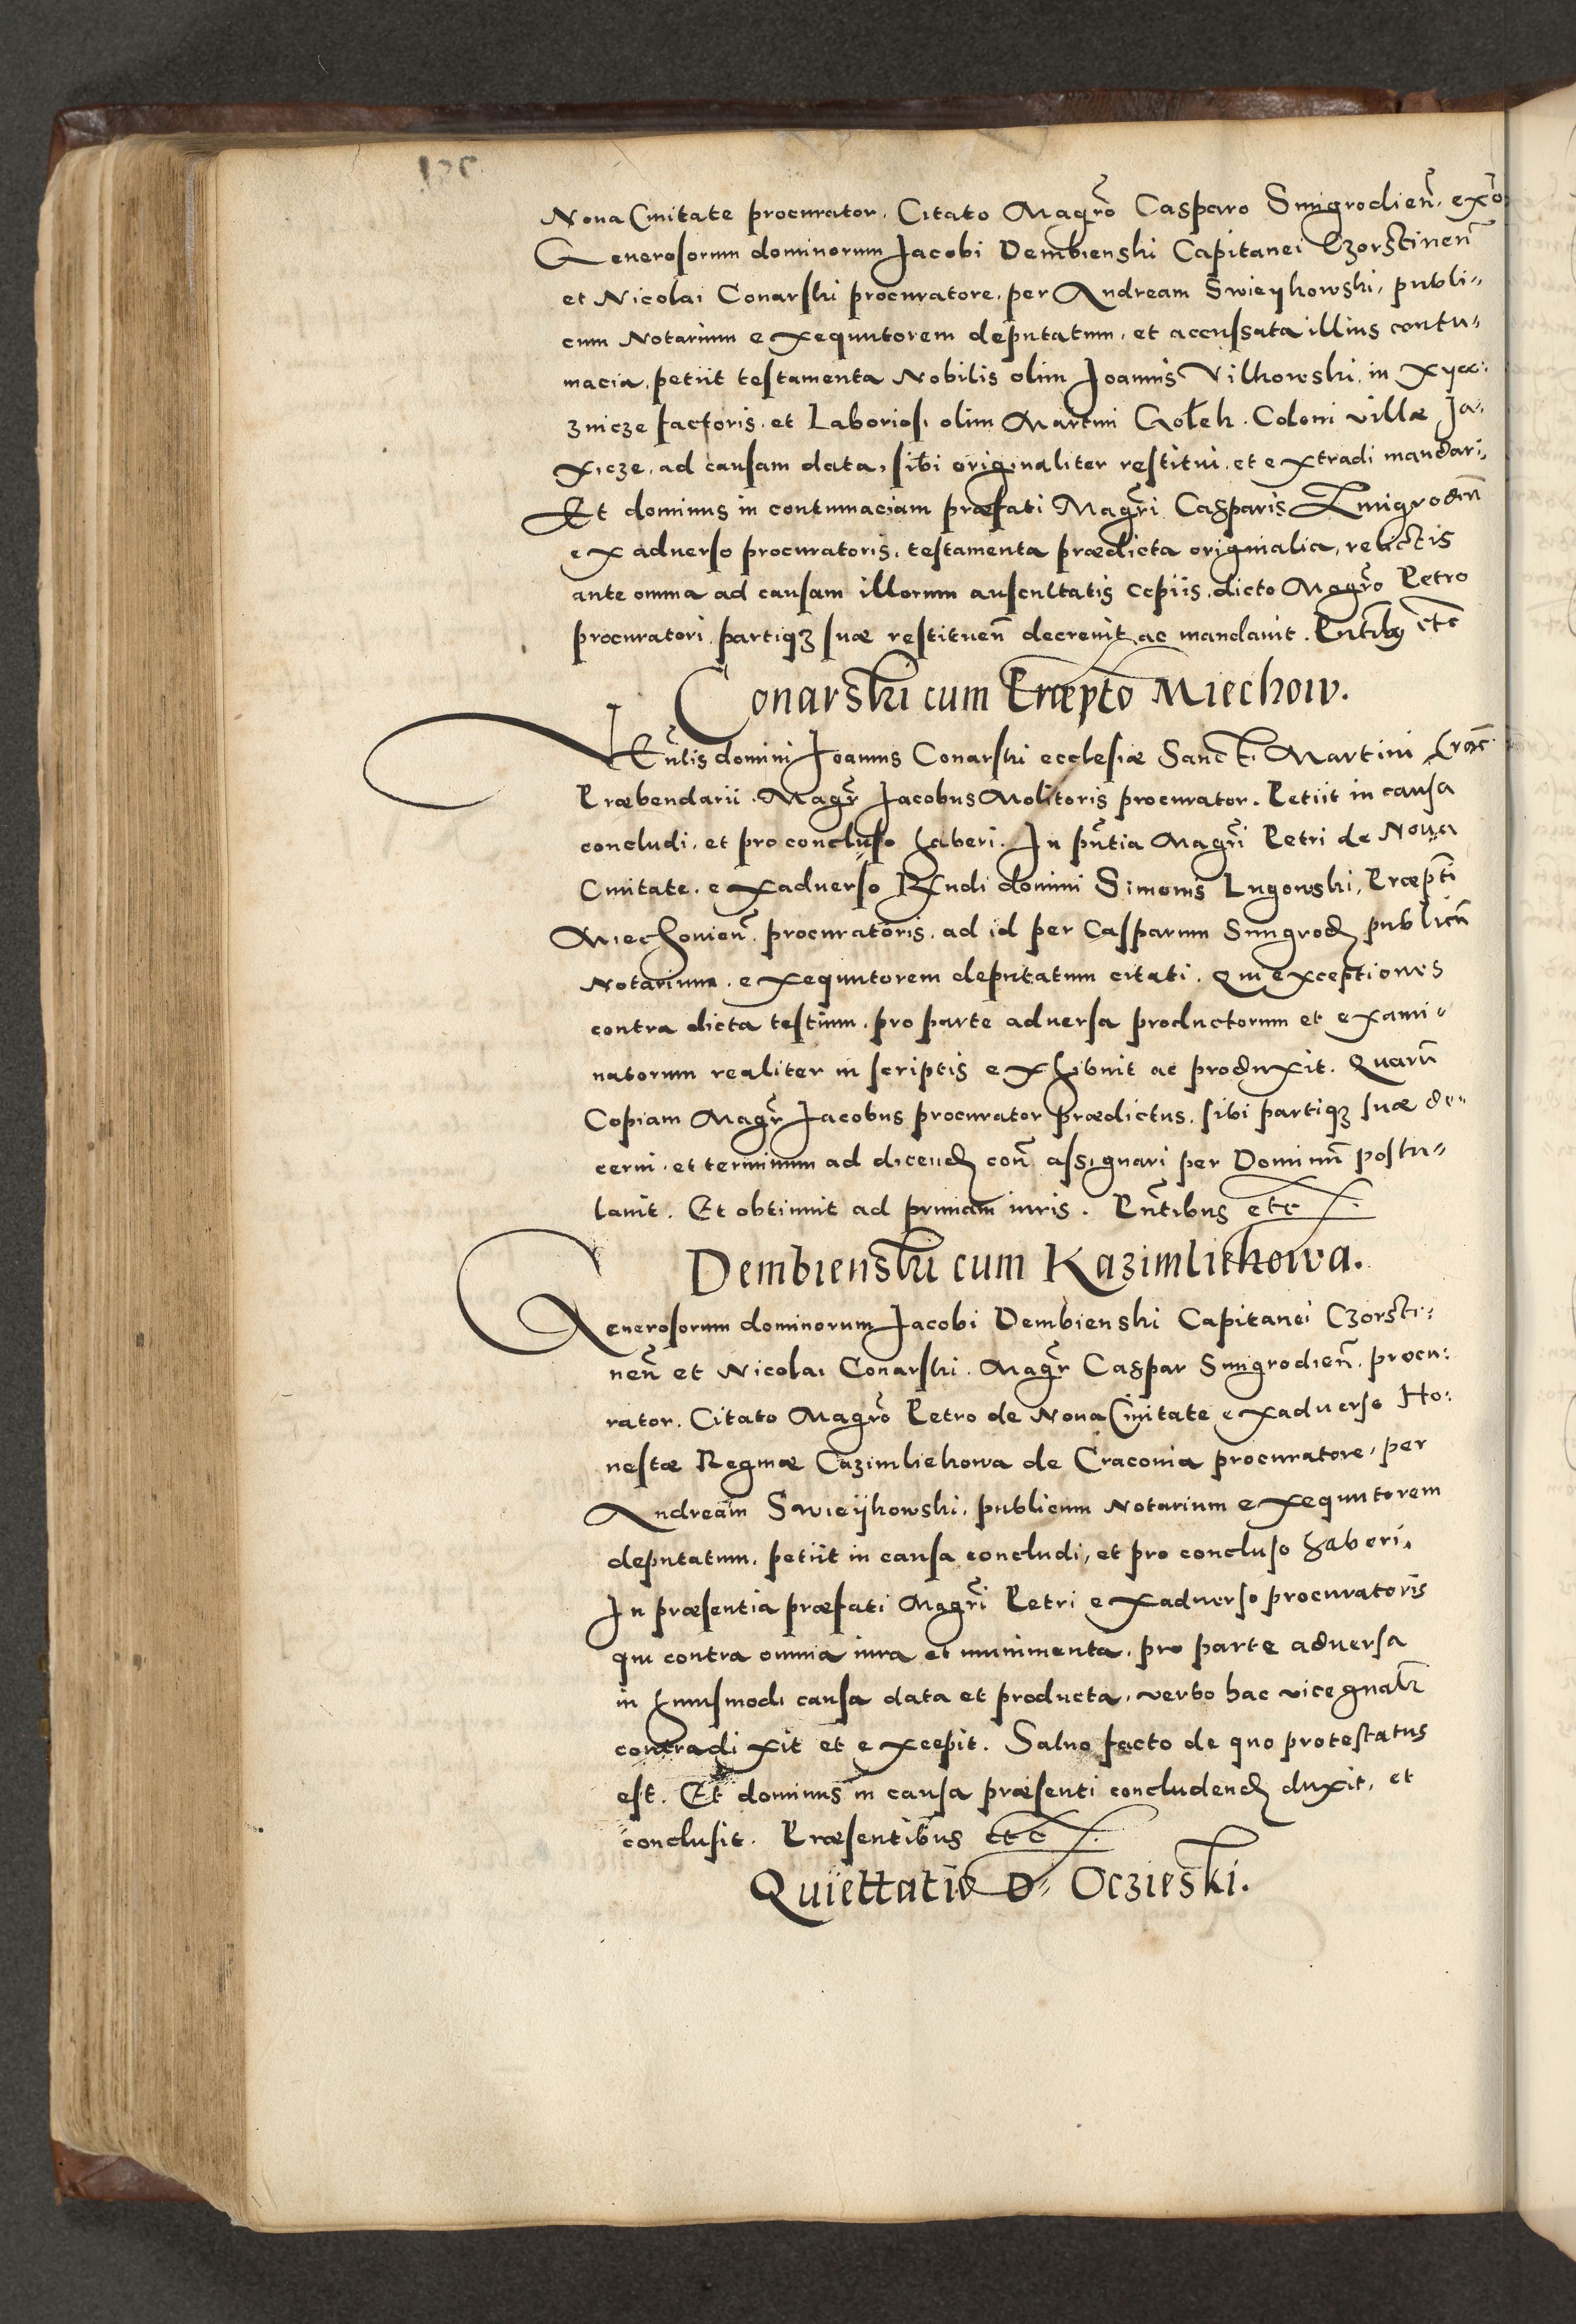 Noua Ciuitate procurator. Citato Magro Casparo Smigrodien. exo
Generosorum dominorum Jacobi Dembienski Capitanei Czorstinen
et Nicolai Conarski procuratore, per Andream Swieykowski, publi-
cum Notarium exequutorem deputatum, et accussata illius contu-
macia, petiit testamenta Nobilis olim Joannis Vilkowski, in Xyax:
znicze factoris, et Laboriosi olim Martini Gołek. Coloni villæ Ja-
xicze, ad causam data, sibi originaliter restitui, et extradi mandari.
Et dominus in contumaciam præfati Magri Casparis Zmigrodien
ex aduerso procuratoris, testamenta prædicta originalia, relictis
ante omnia ad causam illorum auscultatis copiis, dicto Magro Petro
procuratori partiq3 suæ restituen decreuit ac mandauit. Pntibus etc
Conarski cum Præpto Miechow.
Venlis domini Joannis Conarski ecclesiæ Sancti Martini Crac
Præbendarii. Magr Jacobus Molitoris procurator. Petiit in causa
concludi, et pro concluso haberi. In pntia Magri Petri de Noua
Ciuitate, exaduerso Rndi domini Simonis Lugowski, Præpti
Miechouien. procuratoris, ad id per Casparum Smigrod publicu
Notarium, exequutorem deputatum citati. Qui exceptiones
contra dicta testium, pro parte aduersa productorum et exami-
natorum realiter in scriptis exhibuit ac produxit. Quaru
Copiam Magr Jacobus procurator prædictus, sibi partiq3 suæ de-
cerni, et terminum ad dicend con assignari per Dominu postu-
lauit. Et obtinuit ad primam iuris. Pntibus etc
Dembienski cum Kazimlikowa.
Generosorum dominorum Jacobi Dembienski Capitanei Czorsti-
nen et Nicolai Conarski. Magr Caspar Smigrodien. procu:
rator. Citato Magro Petro de Noua Ciuitate exaduerso Ho:
nestæ Reginæ Cazimlikowa de Cracouia procuratore, per
Andream Swieykowski, publicum Notarium exequutorem
deputatum, petiit in causa concludi, et pro concluso haberi.
In præsentia præfati Magri Petri exaduerso procuratoris
qui contra omnia iura et munimenta, pro parte aduersa
in huiusmodi causa data et producta, verbo hac vice gnalr
contradixit et excepit. Saluo facto de quo protestatus
est. Et dominus in causa præsenti concludend duxit, et
conclusit. Præsentibus etc
Quiettatio D. Oczieski.